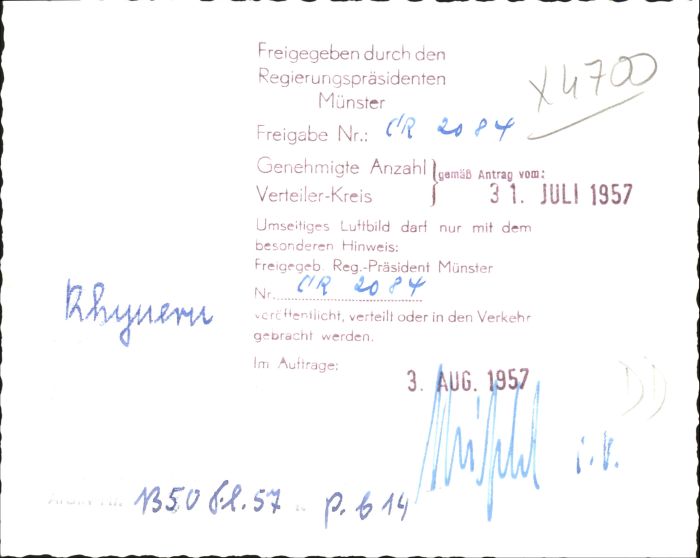 Freigegeben durch den
Regierungspräsidenten
Münster
X4700
Freigabe Nr.: CR 2084
Genehmigte Anzahl
Verteiler-Kreis
gemäß Antrag vom:
31. JULI 1957
Umseitiges Luftbild darf nur mit dem
besonderen Hinweis:
Freigegeb. Reg.-Präsident Münster
Nr. CR 2084
Rhynern
veröffentlicht, verteilt oder in den Verkehr
gebracht werden.
Im Auftrage:
3. AUG. 1957
i.V.
Archiv-Nr. 1350 57 p. 614